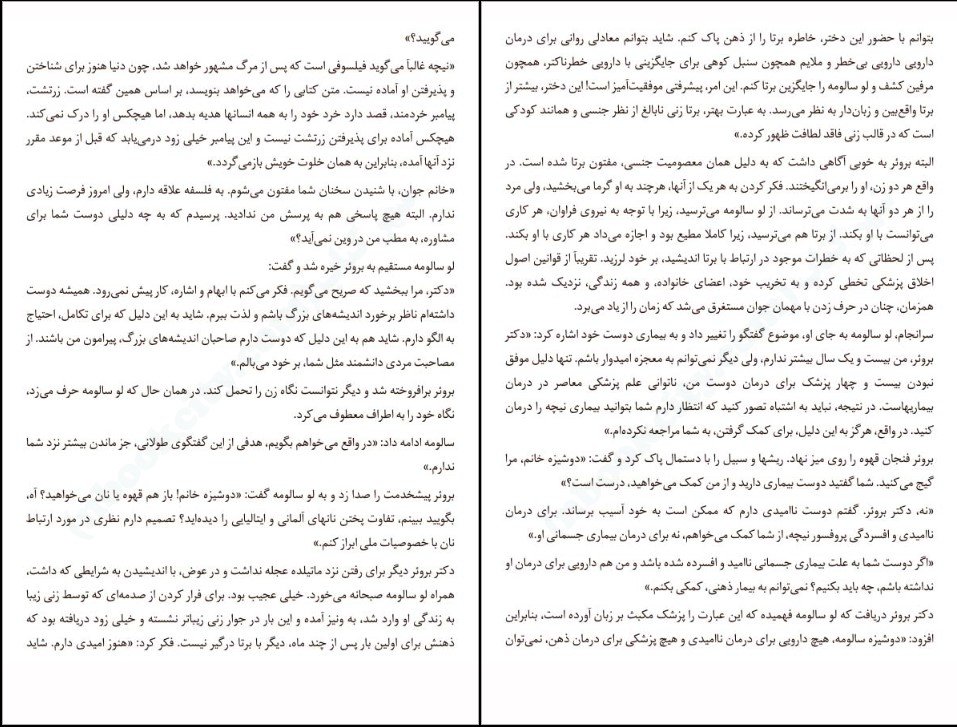 می‌گویید؟»
«نیچه غالباً می‌گوید فیلسوفی است که پس از مرگ مشهور خواهد شد، چون دنیا هنوز برای شناختن
و پذیرفتن او آماده نیست. متن کتابی را که می‌خواهد بنویسد، بر اساس همین گفته است. زرتشت،
پیامبر خردمند، قصد دارد خرد خود را به همه انسانها هدیه بدهد، اما هیچکس او را درک نمی‌کند.
هیچکس آماده برای پذیرفتن زرتشت نیست و این پیامبر خیلی زود درمی‌یابد که قبل از موعد مقرر
نزد آنها آمده، بنابراین به همان خلوت خویش بازمی‌گردد.»
«خانم جوان، با شنیدن سخنان شما مفتون می‌شوم. به فلسفه علاقه دارم، ولی امروز فرصت زیادی
ندارم. البته هیچ پاسخی هم به پرسش من ندادید. پرسیدم که به چه دلیلی دوست شما برای
مشاوره، به مطب من در وین نمی‌آید؟»
لو سالومه مستقیم به بروئر خیره شد و گفت:
«دکتر، مرا ببخشید که صریح می‌گویم. فکر می‌کنم با ابهام و اشاره، کار پیش نمی‌رود. همیشه دوست
داشته‌ام ناظر برخورد اندیشه‌های بزرگ باشم و لذت ببرم. شاید به این دلیل که برای تکامل، احتیاج
به الگو دارم. شاید هم به این دلیل که دوست دارم صاحبان اندیشه‌های بزرگ، پیرامون من باشند. از
مصاحبت مردی دانشمند مثل شما، بر خود می‌بالم.»
بروئر برافروخته شد و دیگر نتوانست نگاه زن را تحمل کند. در همان حال که لو سالومه حرف می‌زد،
نگاه خود را به اطراف معطوف می‌کرد.
سالومه ادامه داد: «در واقع می‌خواهم بگویم، هدفی از این گفتگوی طولانی، جز ماندن بیشتر نزد شما
ندارم.»
بروئر پیشخدمت را صدا زد و به لو سالومه گفت: «دوشیزه خانم! باز هم قهوه یا نان می‌خواهید؟ آه،
بگویید ببینم، تفاوت پختن نانهای آلمانی و ایتالیایی را دیده‌اید؟ تصمیم دارم نظری در مورد ارتباط
نان با خصوصیات ملی ابراز کنم.»
دکتر بروئر دیگر برای رفتن نزد ماتیلده عجله نداشت و در عوض، با اندیشیدن به شرایطی که داشت،
همراه لو سالومه صبحانه می‌خورد. خیلی عجیب بود. برای فرار کردن از صدمه‌ای که توسط زنی زیبا
به زندگی او وارد شد، به ونیز آمده و این بار در جوار زنی زیباتر نشسته و خیلی زود دریافته بود که
ذهنش برای اولین بار پس از چند ماه، دیگر با برتا درگیر نیست. فکر کرد: «هنوز امیدی دارم. شاید
بتوانم با حضور این دختر، خاطره برتا را از ذهن پاک کنم. شاید بتوانم معادلی روانی برای درمان
دارویی دارویی بی‌خطر و ملایم همچون سنبل کوهی برای جایگزینی با دارویی خطرناکتر، همچون
مرفین کشف و لو سالومه را جایگزین برتا کنم. این امر، پیشرفتی موفقیت‌آمیز است! این دختر، بیشتر از
برتا واقع‌بین و زبان‌دار به نظر می‌رسد. به عبارت بهتر، برتا زنی نابالغ از نظر جنسی و همانند کودکی
است که در قالب زنی فاقد لطافت ظهور کرده.»
البته بروئر به خوبی آگاهی داشت که به دلیل همان معصومیت جنسی، مفتون برتا شده است. در
واقع هر دو زن، او را برمی‌انگیختند. فکر کردن به هر یک از آنها، هرچند به او گرما می‌بخشید، ولی مرد
را از هر دو آنها به شدت می‌ترساند. از لو سالومه می‌ترسید، زیرا با توجه به نیروی فراوان، هر کاری
می‌توانست با او بکند. از برتا هم می‌ترسید، زیرا کاملا مطیع بود و اجازه می‌داد هر کاری با او بکند.
پس از لحظاتی که به خطرات موجود در ارتباط با برتا اندیشید، بر خود لرزید. تقریباً از قوانین اصول
اخلاق پزشکی تخطی کرده و به تخریب خود، اعضای خانواده، و همه زندگی، نزدیک شده بود.
همزمان، چنان در حرف زدن با مهمان جوان مستغرق می‌شد که زمان را از یاد می‌برد.
سرانجام، لو سالومه به جای او، موضوع گفتگو را تغییر داد و به بیماری دوست خود اشاره کرد: «دکتر
بروئر، من بیست و یک سال بیشتر ندارم، ولی دیگر نمی‌توانم به معجزه امیدوار باشم. تنها دلیل موفق
نبودن بیست و چهار پزشک برای درمان دوست من، ناتوانی علم پزشکی معاصر در درمان
بیماریهاست. در نتیجه، نباید به اشتباه تصور کنید که انتظار دارم شما بتوانید بیماری نیچه را درمان
کنید. در واقع، هرگز به این دلیل، برای کمک گرفتن، به شما مراجعه نکرده‌ام.»
بروئر فنجان قهوه را روی میز نهاد. ریشها و سبیل را با دستمال پاک کرد و گفت: «دوشیزه خانم، مرا
گیج می‌کنید. شما گفتید دوست بیماری دارید و از من کمک می‌خواهید، درست است؟»
«نه، دکتر بروئر. گفتم دوست ناامیدی دارم که ممکن است به خود آسیب برساند. برای درمان
ناامیدی و افسردگی پروفسور نیچه، از شما کمک می‌خواهم، نه برای درمان بیماری جسمانی او.»
«اگر دوست شما به علت بیماری جسمانی ناامید و افسرده شده باشد و من هم دارویی برای درمان او
نداشته باشم، چه باید بکنیم؟ نمی‌توانم به بیمار ذهنی، کمکی بکنم.»
دکتر بروئر دریافت که لو سالومه فهمیده که این عبارت را پزشک مکبث بر زبان آورده است، بنابراین
افزود: «دوشیزه سالومه، هیچ دارویی برای درمان ناامیدی و هیچ پزشکی برای درمان ذهن، نمی‌توان